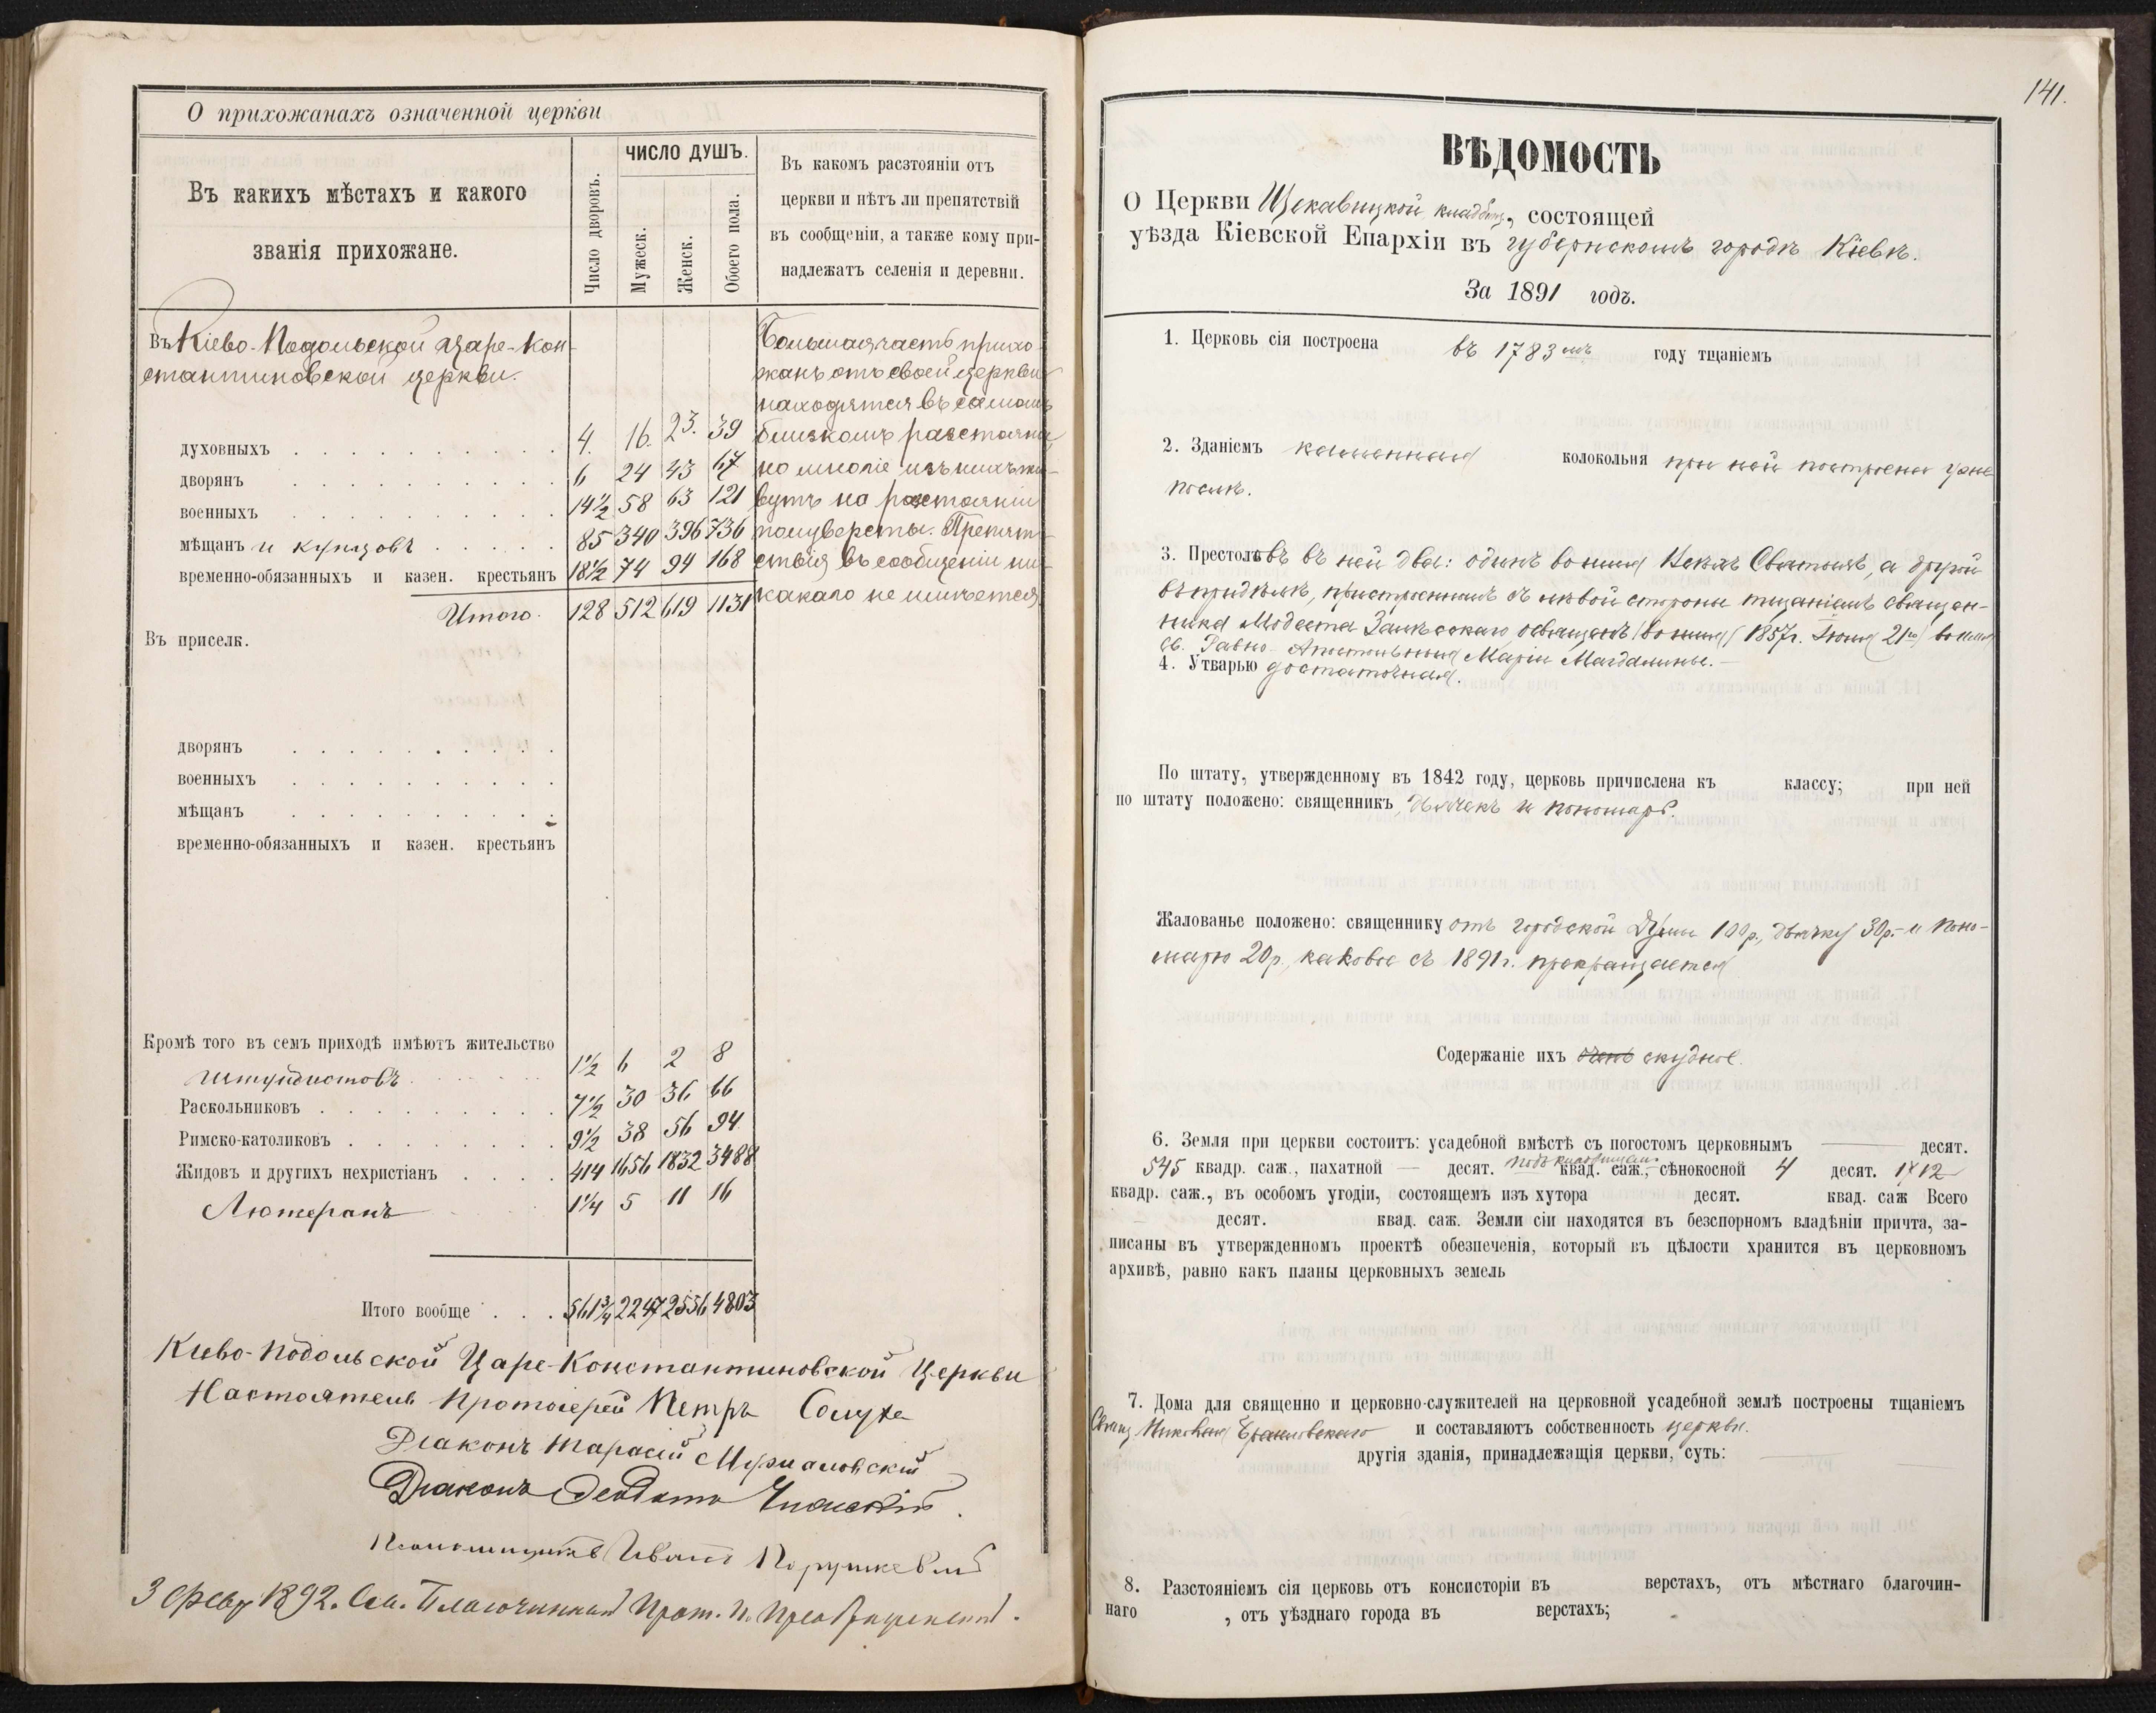 О прихожанахъ означенной церкви
Въ какихъ мѣстахъ и какого
званія прихожане.
Число дворовъ.
ЧИСЛО ДУШЪ.
Мужеск.
Женск.
Обоего пола.
Въ какомъ разстояніи отъ
церкви и нѣтъ ли препятствій
въ сообщеніи, а также кому при-
надлежатъ селенія и деревни.
Въ Кіево-Подольской Царе-Кон-
стантиновской церкви.
Большая часть прихо-
жанъ отъ своей церкви
находятся въ самомъ
близкомъ разстояніи,
но многіе изъ нихъ жи-
вутъ на разстояніи
полуверсты. Препят-
ствія въ сообщеніи ни-
какаго не имѣется.
духовныхъ 4. 16. 23. 39
дворянъ 6 24 43 67
военныхъ 14½ 58 63 121
мѣщанъ и купцовъ 85 340 396 736
временно-обязанныхъ и казен. крестьянъ 18½ 74 94 168
Итого. 128 512 619 1131
Въ приселк.
дворянъ
военныхъ
мѣщанъ
временно-обязанныхъ и казен. крестьянъ
Кромѣ того въ семъ приходѣ имѣютъ жительство
Штундистовъ 1½ 6 2 8
Раскольниковъ 7½ 30 36 66
Римско-католиковъ 9½ 38 56 94
Жидовъ и другихъ нехристіанъ 414 1656 1832 3488
Лютеранъ 1¼ 5 11 16
Итого вообще 561¾ 2247 2556 4803
Кіево-Подольской Царе-Константиновской Церкви
Настоятель Протоіерей Петръ
Діаконъ Тарасій
Діаконъ
Псаломщикъ Иванъ
3 Февр 1892. Благочинный Прот. П. Преображенскій.
141.
ВѢДОМОСТЬ
О Церкви Щекавицкой кладбищ, состоящей
уѣзда Кіевской Епархіи въ губернскомъ городѣ Кіевѣ.
За 1891 годъ.
1. Церковь сія построена въ 1783 мъ году тщаніемъ
2. Зданіемъ каменная колокольня при ней построена
послѣ.
3. Престоловъ въ ней два: одинъ во имя Всѣхъ Святыхъ, а другой
въ придѣлѣ, пристроенномъ съ лѣвой стороны тщаніемъ священ-
ника Модеста освященъ (во имя) 1857 г. Іюня 21го) во имя
Св. Равно-Апостольныя Маріи Магдалины.
4. Утварью достаточная.
По штату, утвержденному въ 1842 году, церковь причислена къ классу; при ней
по штату положено: священникъ, дьячекъ и пономарь.
Жалованье положено: священнику отъ городской Думы 100 р., дьячку 30 р. и поно-
марю 20 р., каковое съ 1891 г. прекращается
Содержаніе ихъ скудное.
6. Земля при церкви состоитъ: усадебной вмѣстѣ съ погостомъ церковнымъ — десят.
545 квадр. саж., пахатной — десят. квад. саж., сѣнокосной 4 десят. 1712
квадр. саж., въ особомъ угодіи, состоящемъ изъ хутора десят. квад. саж Всего
десят. квад. саж. Земли сіи находятся въ безспорномъ владѣніи причта, за-
писаны въ утвержденномъ проектѣ обезпеченія, который въ цѣлости хранится въ церковномъ
архивѣ, равно какъ планы церковныхъ земель
7. Дома для священно и церковно-служителей на церковной усадебной землѣ построены тщаніемъ
Свящ Николая и составляютъ собственность церкви.
другія зданія, принадлежащія церкви, суть:
8. Разстояніемъ сія церковь отъ консисторіи въ верстахъ, отъ мѣстнаго благочин-
наго , отъ уѣзднаго города въ верстахъ;